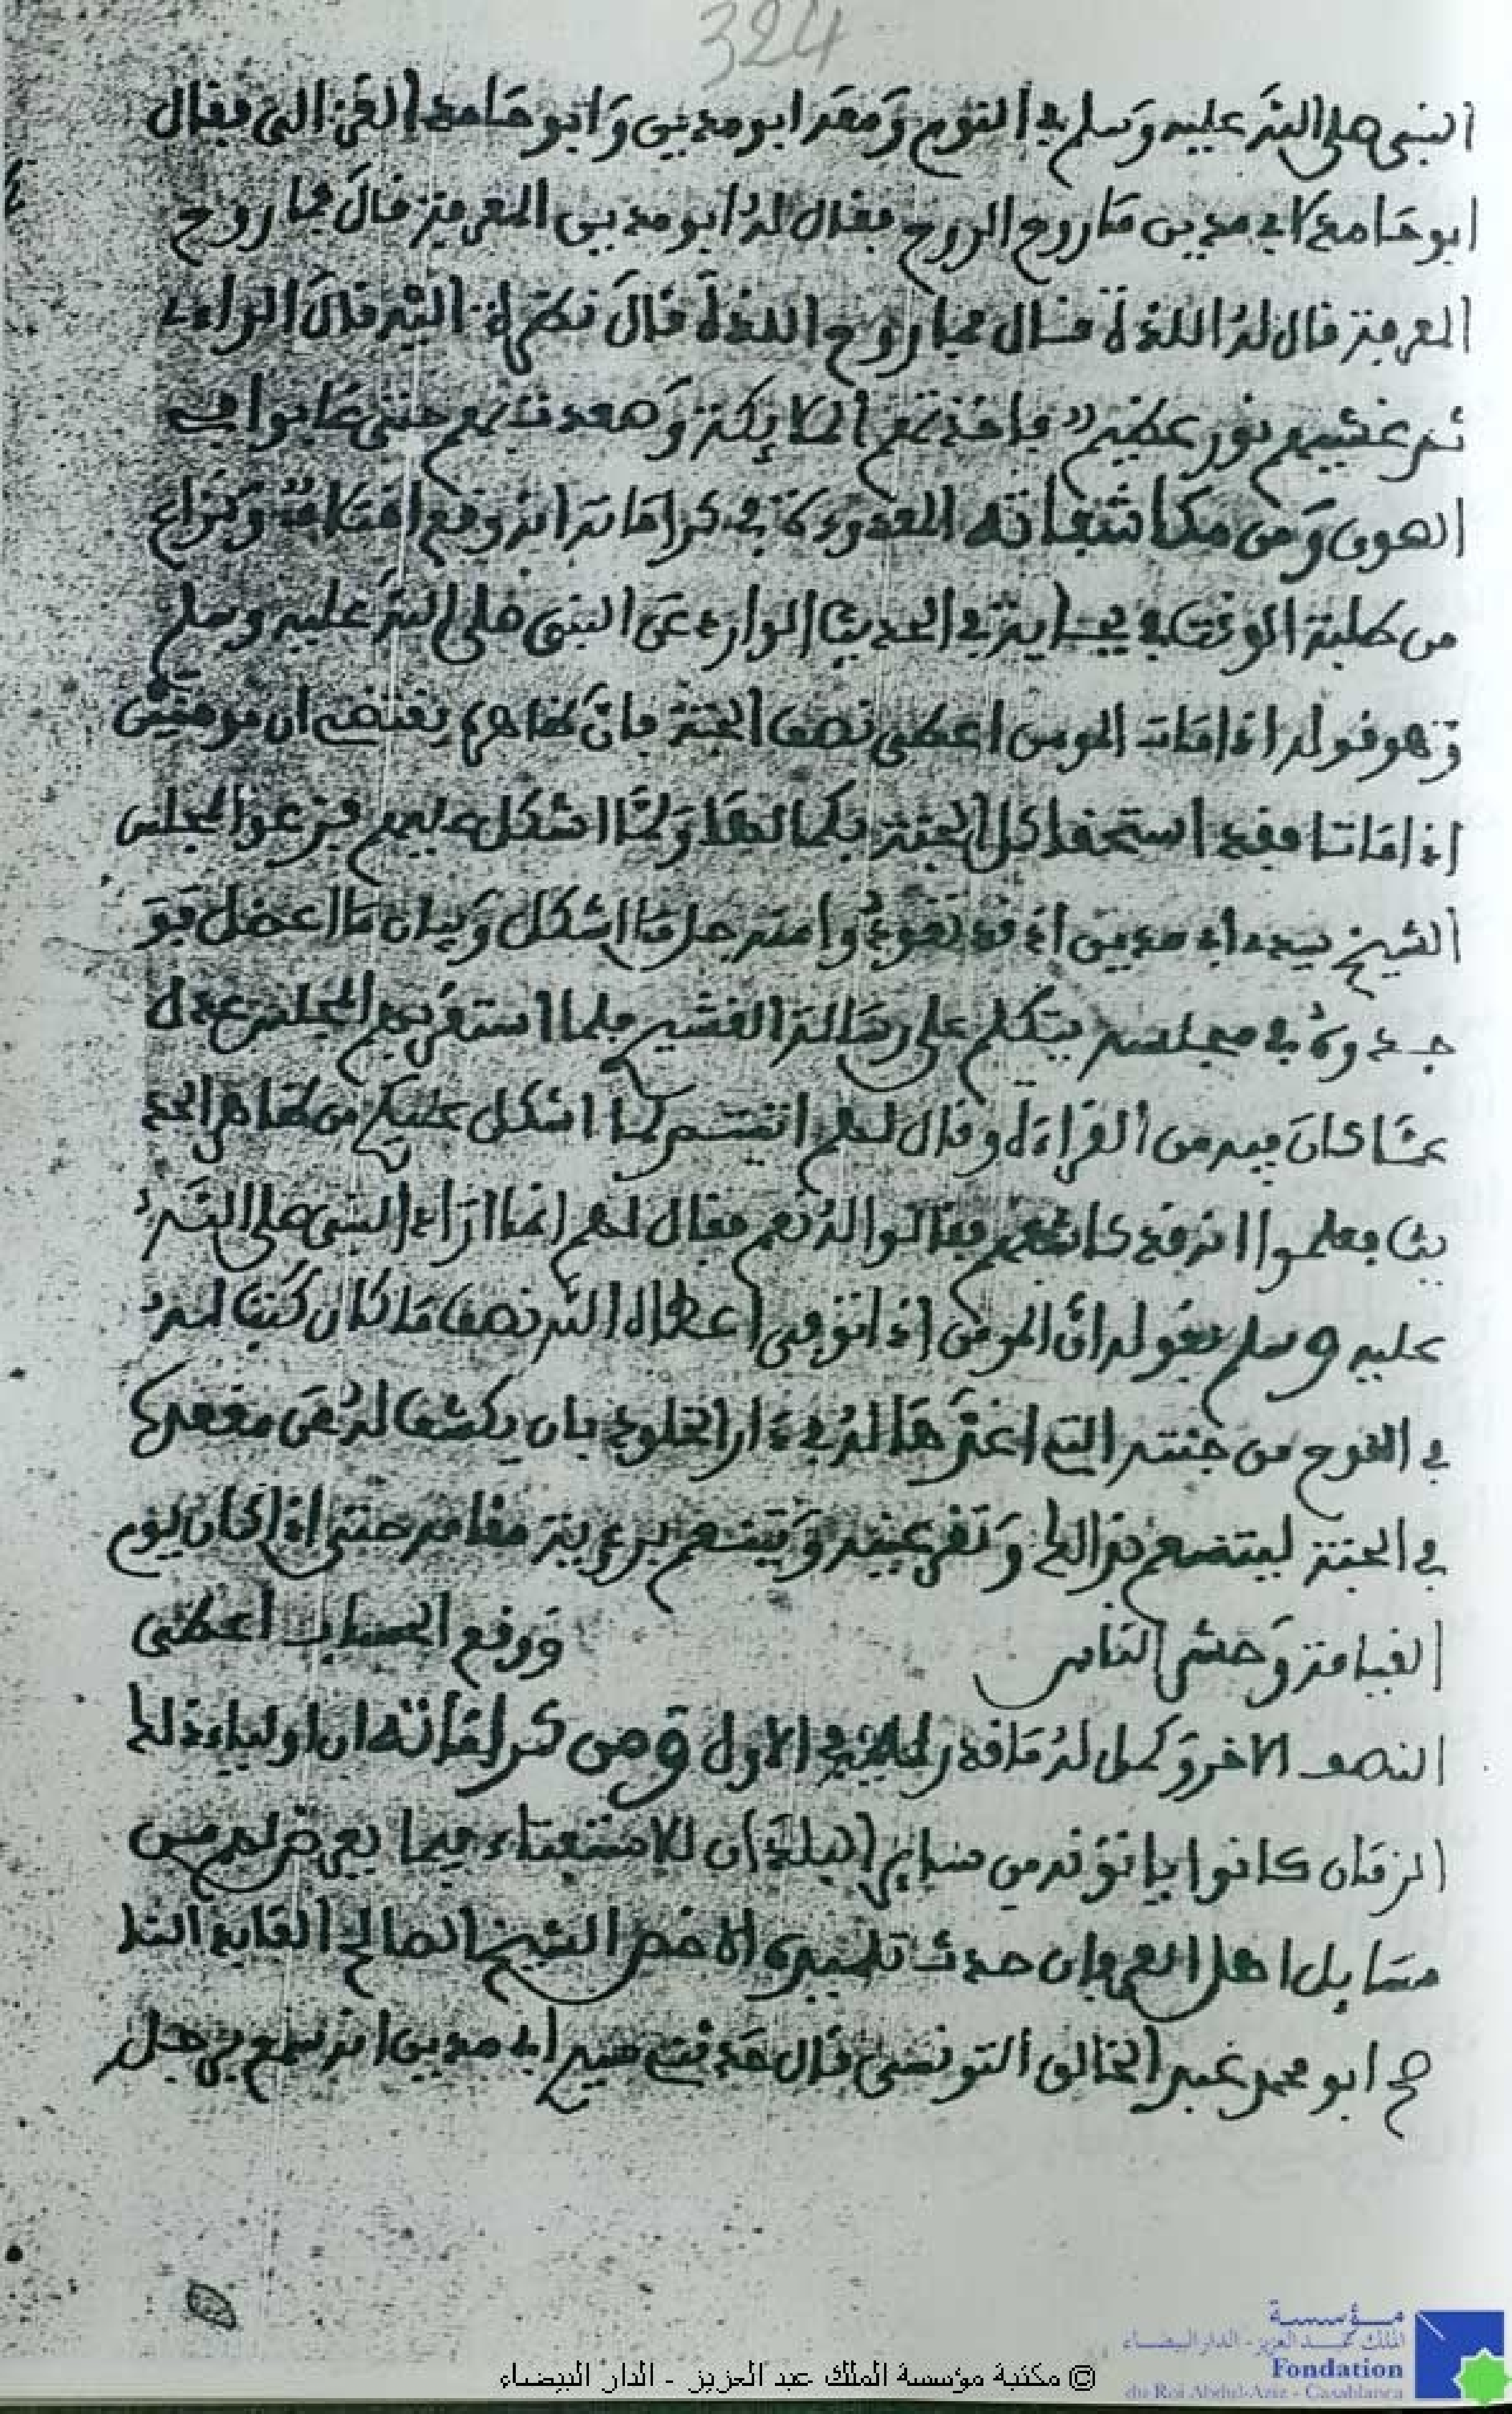 324
النبي صلى الله عليه وسلم في النوم ومعه ابو مدين وابو حامد الغزالي فقال
ابو حامد لابي مدين ما روح الروح فقال له ابو مدين المعرفة قال فما روح
المعرفة قال له اللذة قال فما روح اللذة قال نظرة الله قال الراءي
ثم غشيهم نور عظيم فاخذتهم الملايكة وصعدت بهم حتى غابوا في
الهوى ومن مكاشفاته المعدودة في كراماته انه وقع اختلاف ونزاع
من طلبة الوقت في بجاية في الحديث الوارد عن النبي صلى الله عليه وسلم
وهو قوله اذا مات المومن اعطى نصف الجنة فان ظاهره يقتضي ان مومنين
اذا ماتا فقد استحقا كل الجنة بكمالها ولما اشكل عليهم فزعوا لمجلس
الشيخ سيدي ابي مدين اذ قد تعودوا منه حل ما اشكل وبيان ما اعضل فو
جدوه في مجلسه يتكلم على رسالة القشيري فلما استقر بهم المجلس عدل
عما كان فيه من القراءة وقال لهم انتم كما اشكل عليكم من ظاهر الحد
يث فعلموا انه قد كاشفهم فقالوا له نعم فقال لهم انما اراد النبي صلى الله
عليه وسلم بقوله ان المومن اذا توفى اعطاه الله نصف ما كان كتب له
في اللوح من جنته التي اعدها له في دار الخلود بان يكشف له عن مقعده
في الجنة ليتنعم بذالك وتقر عينه ويتنعم برءوية مقامه حتى اذا كان يوم
القيامة وحشر الناس ووقع الحساب اعطى
النصف الاخر وكمل له ما قدر له في الاول ومن كراماته ان اولياء ذلك
الزمان كانوا ياتونه من ساير البلدان للاستفتاء فيما يعرض لهم من
مسايل اهل العرفان حدث تلميذه الاخص الشيخ الصالح العابد النا
صح ابو محمد عبد الخالق التونسي قال حدثني سيدي ابي مدين انه سمع برجل
© مكتبة مؤسسة الملك عبد العزيز - الدار البيضاء
مؤسسة
الملك عبد العزيز - الدار البيضاء
Fondation
du Roi Abdul-Aziz - Casablanca